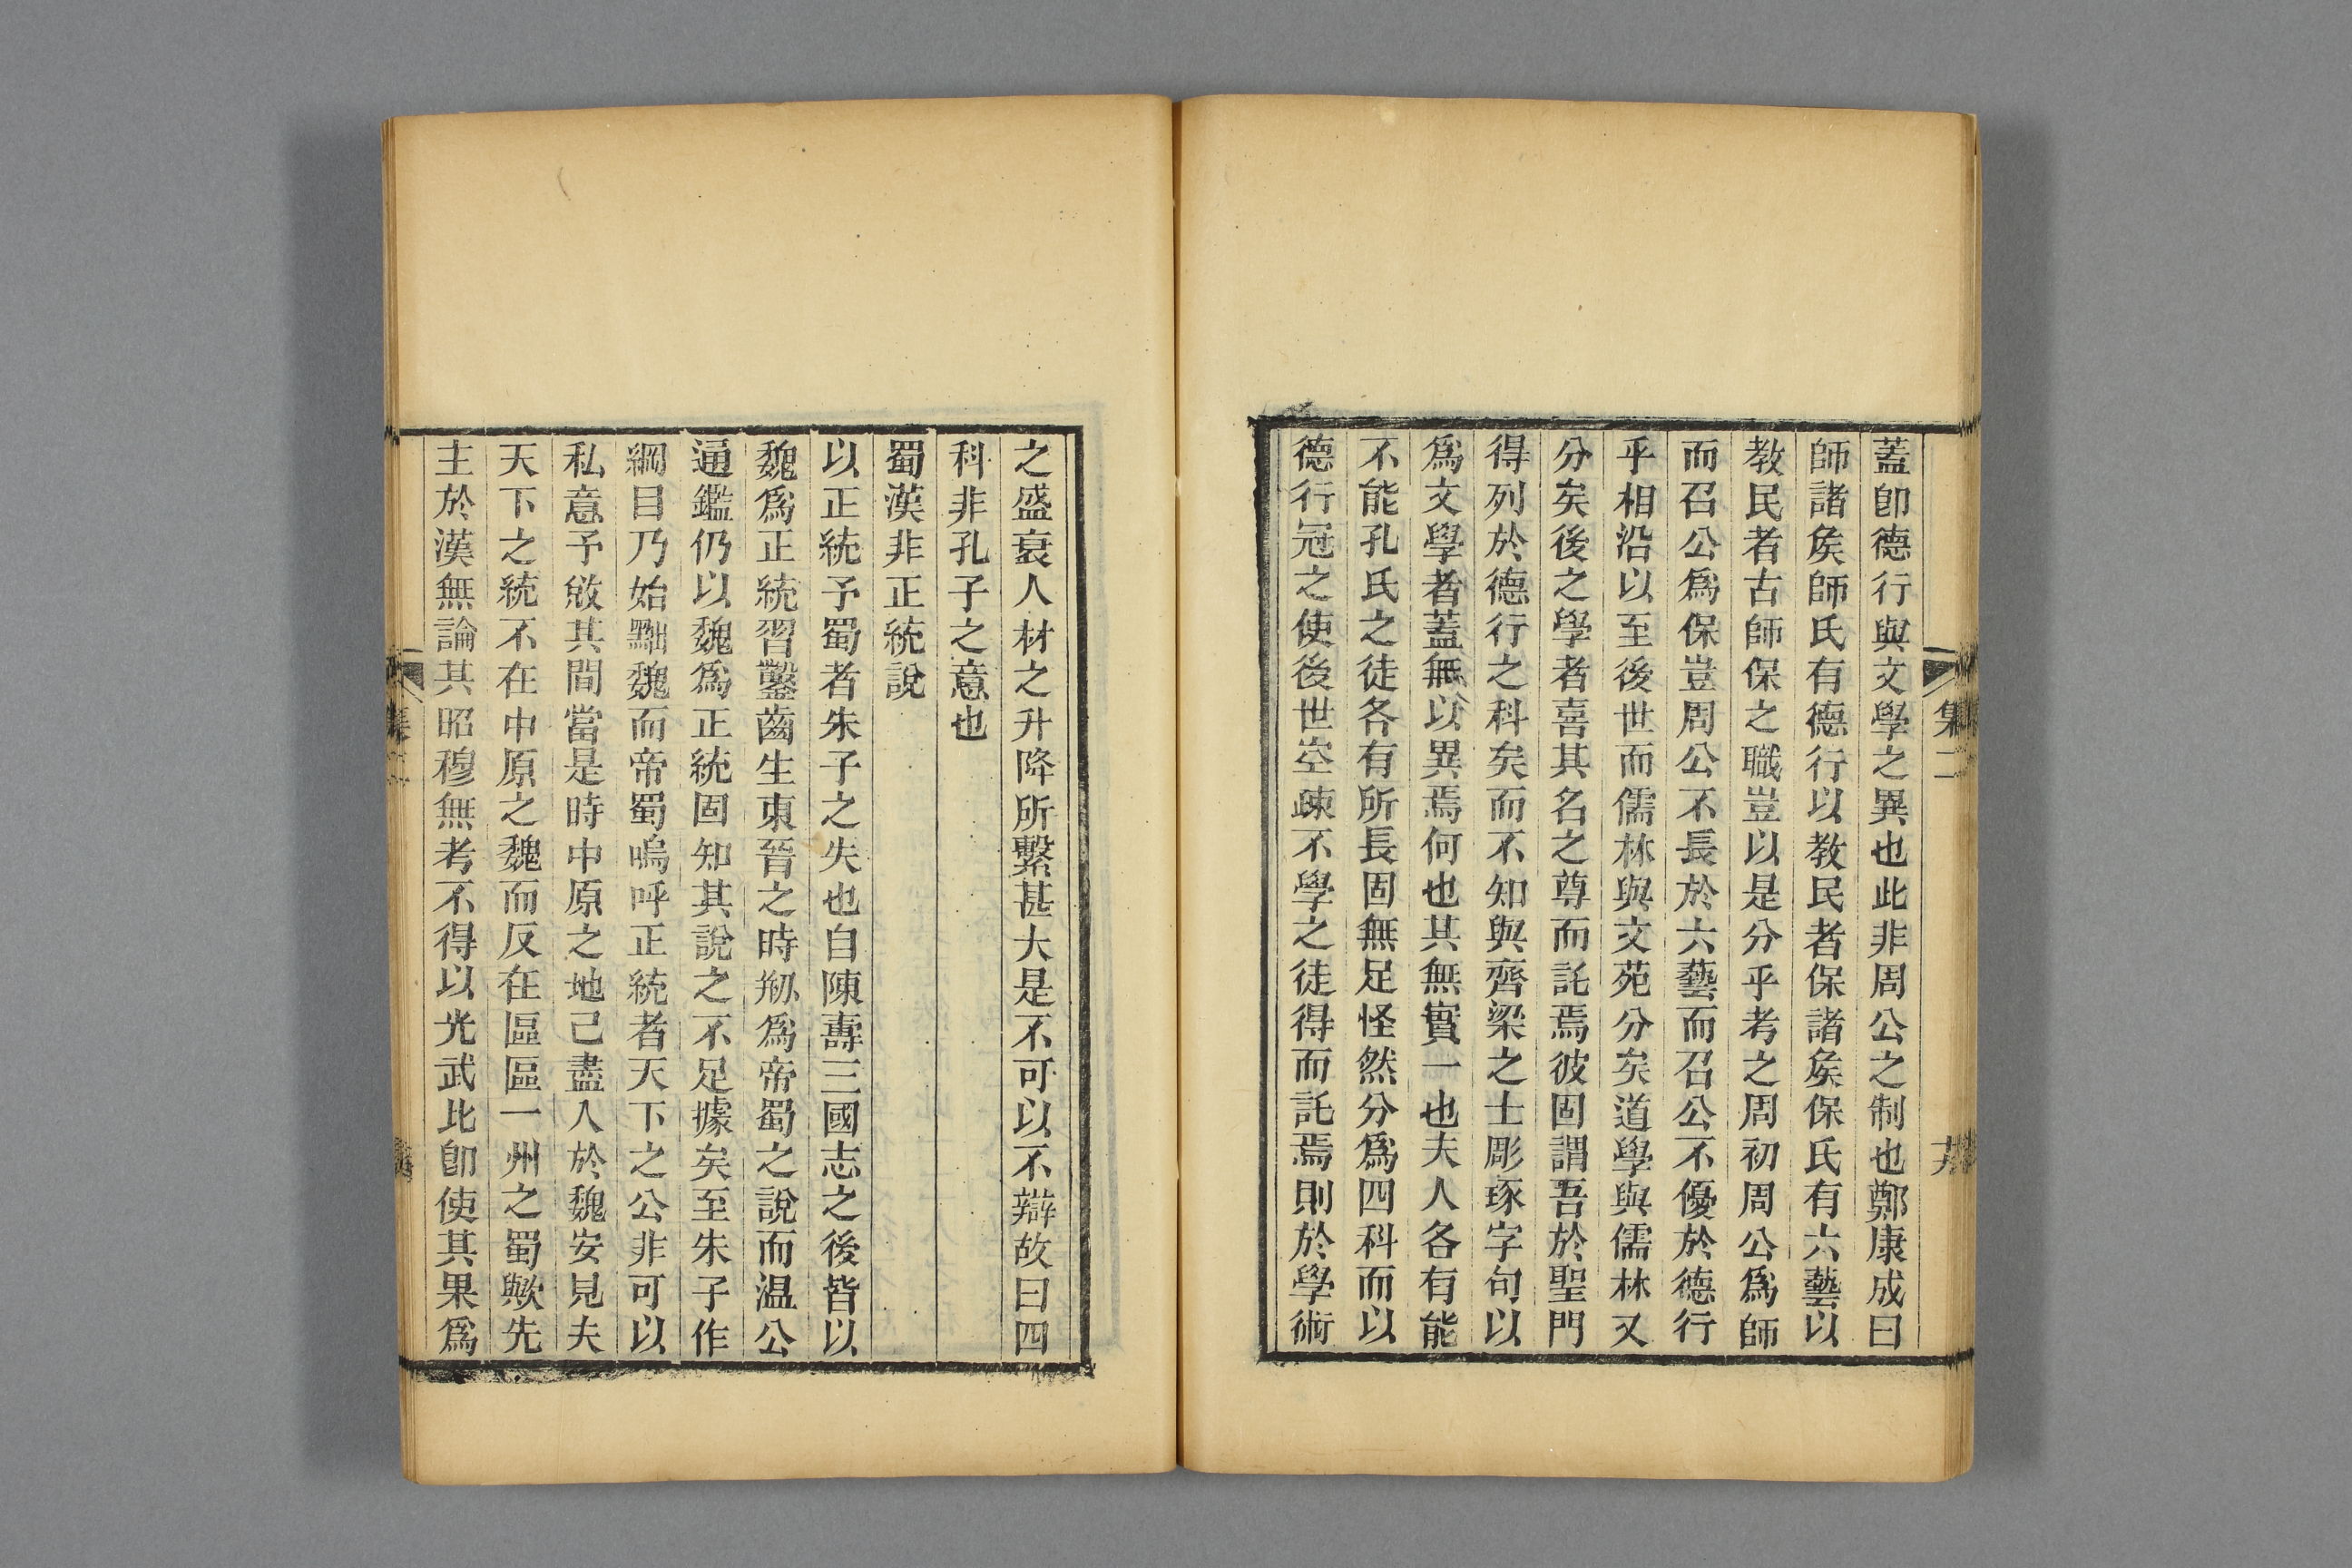 蓋卽德行與文學之異也此非周公之制也鄭康成曰
師諸矦師氏有德行以教民者保諸矦保氏有六藝以
教民者古師保之職豈以是分乎考之周初周公爲師
而召公爲保豈周公不長於六藝而召公不優於德行
乎相沿以至後世而儒林與文苑分矣道學與儒林又
分矣後之學者喜其名之尊而託焉彼固謂吾於聖門
得列於德行之科矣而不知與齊梁之士彫琢字句以
爲文學者蓋無以異焉何也其無實一也夫人各有能
不能孔氏之徒各有所長固無足怪然分爲四科而以
德行冠之使後世空疎不學之徒得而託焉則於學術
集二
之盛衰人材之升降所繫甚大是不可以不辯故曰四
科非孔子之意也
蜀漢非正統說
以正統予蜀者朱子之失也自陳壽三國志之後皆以
魏爲正統習鑿齒生東晉之時剏爲帝蜀之說而温公
通鑑仍以魏爲正統固知其說之不足據矣至朱子作
綱目乃始黜魏而帝蜀嗚呼正統者天下之公非可以
私意予敓其間當是時中原之地己盡人於魏安見夫
天下之統不在中原之魏而反在區區一州之蜀歟先
主於漢無論其昭穆無考不得以光武比卽使其果爲